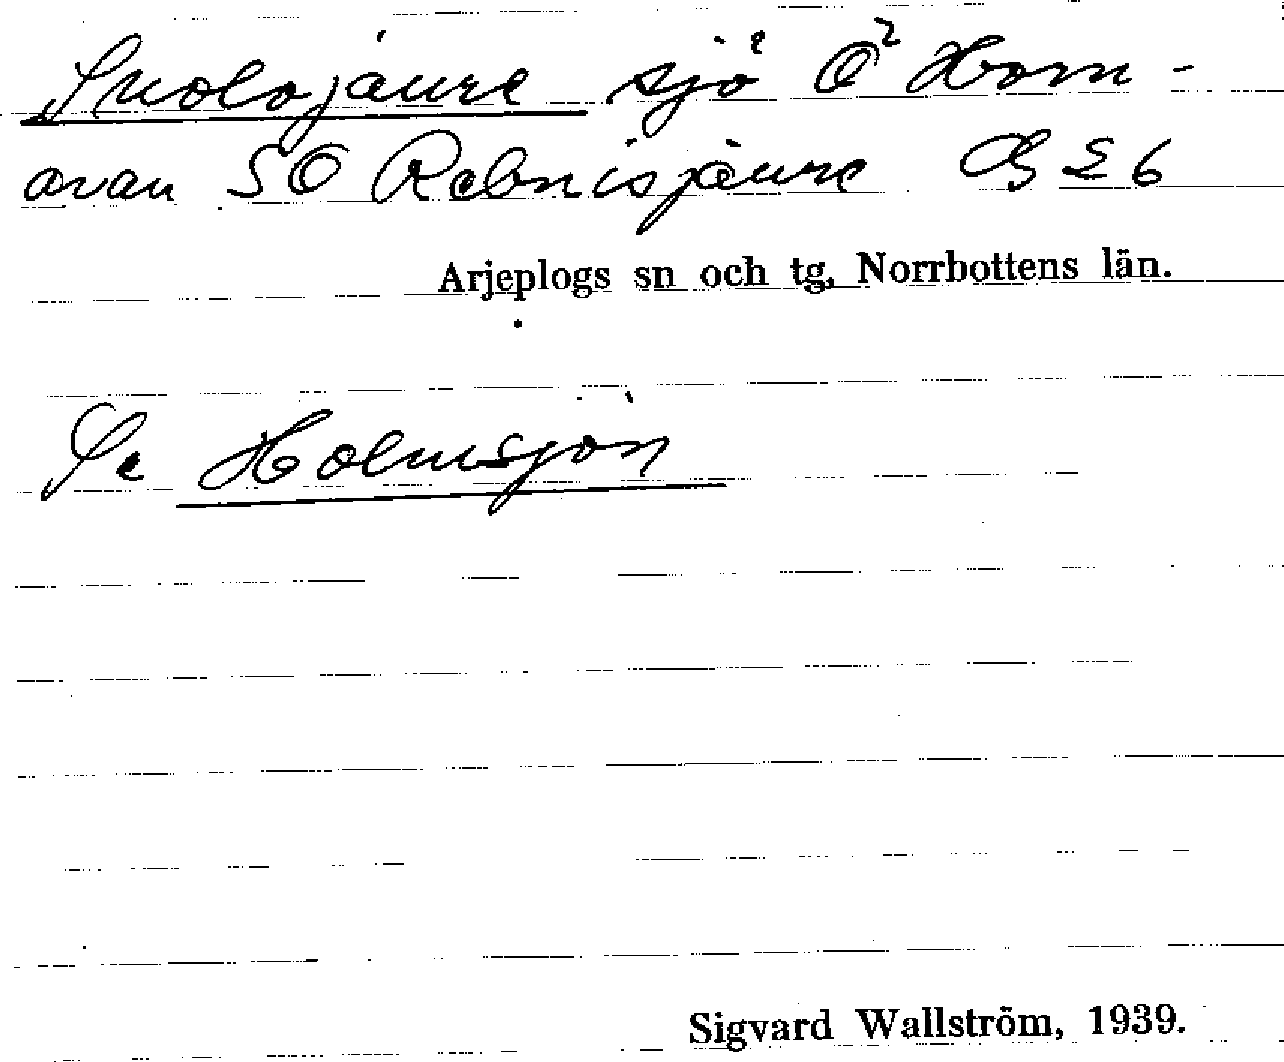 Suolojaure sjö Ö² Horn-
avan SO Rebnisjaure B Σ 6
Arjeplogs sn och tg, Norrbottens län.
Se Holmsjön
Sigvard Wallström, 1939.